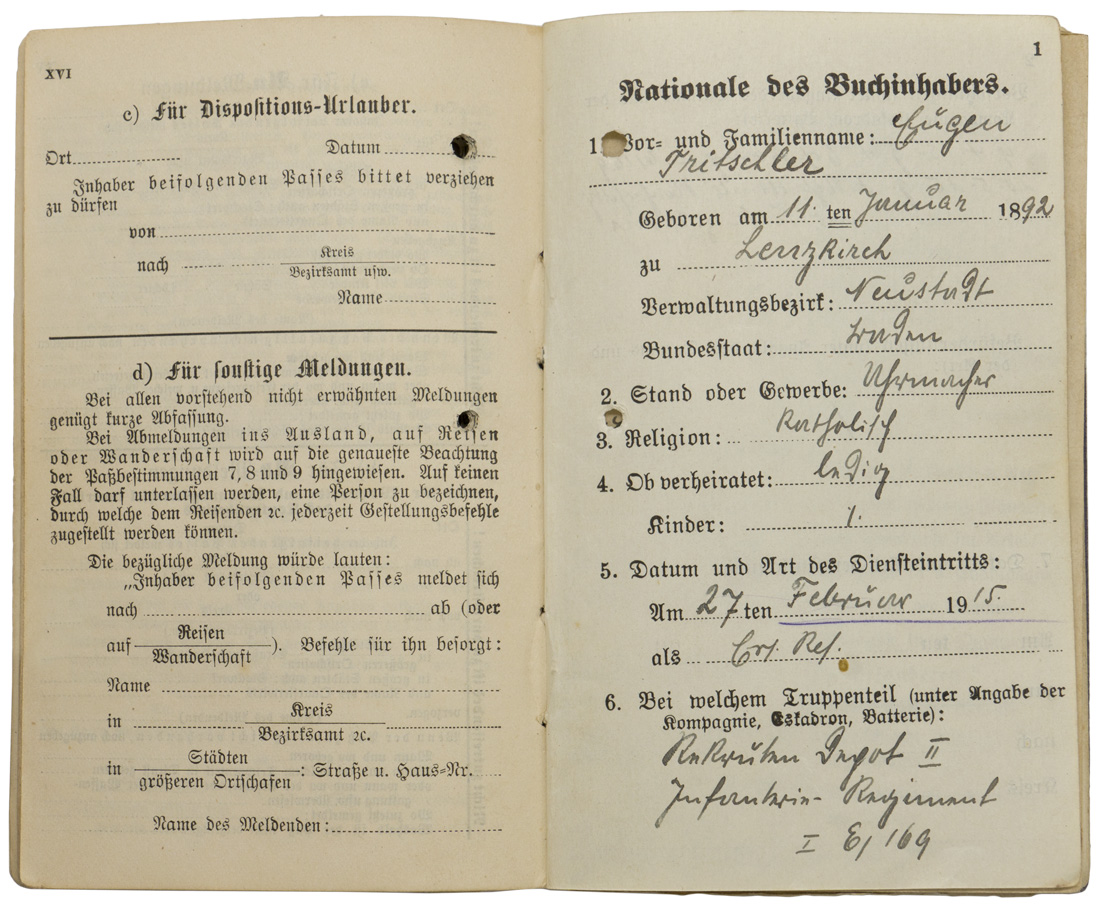 XVI
c) Für Dispositions-Urlauber.
Ort Datum
Inhaber beifolgenden Passes bittet verziehen
zu dürfen
von
nach Kreis
Bezirksamt usw.
Name
d) Für sonstige Meldungen.
Bei allen vorstehend nicht erwähnten Meldungen
genügt kurze Abfassung.
Bei Abmeldungen ins Ausland, auf Reisen
oder Wanderschaft wird auf die genaueste Beachtung
der Paßbestimmungen 7, 8 und 9 hingewiesen. Auf keinen
Fall darf unterlassen werden, eine Person zu bezeichnen,
durch welche dem Reisenden ꝛc. jederzeit Gestellungsbefehle
zugestellt werden können.
Die bezügliche Meldung würde lauten:
„Inhaber beifolgenden Passes meldet sich
nach ab (oder
auf Reisen
Wanderschaft ). Befehle für ihn besorgt:
Name
in Kreis
Bezirksamt ꝛc.
in Städten
größeren Ortschafen : Straße u. Haus-Nr.
Name des Meldenden:
1
Nationale des Buchinhabers.
1. Vor- und Familienname: Eugen
Tritschler
Geboren am 11. ten Januar 1892
zu Lenzkirch
Verwaltungsbezirk: Neustadt
Bundesstaat: Baden
2. Stand oder Gewerbe: Uhrmacher
3. Religion: Katholisch
4. Ob verheiratet: ledig
Kinder: /.
5. Datum und Art des Diensteintritts:
Am 27 ten Februar 1915.
als Ers. Res.
6. Bei welchem Truppenteil (unter Angabe der
Kompagnie, Eskadron, Batterie):
Rekruten Depot II
Infanterie-Regiment
I E/169